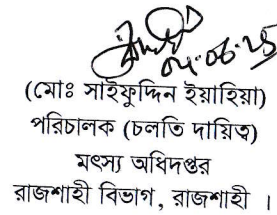 ০৫.০৬.২৫
(মোঃ সাইফুদ্দিন ইয়াহিয়া)
পরিচালক (চলতি দায়িত্ব)
মৎস্য অধিদপ্তর
রাজশাহী বিভাগ, রাজশাহী ।